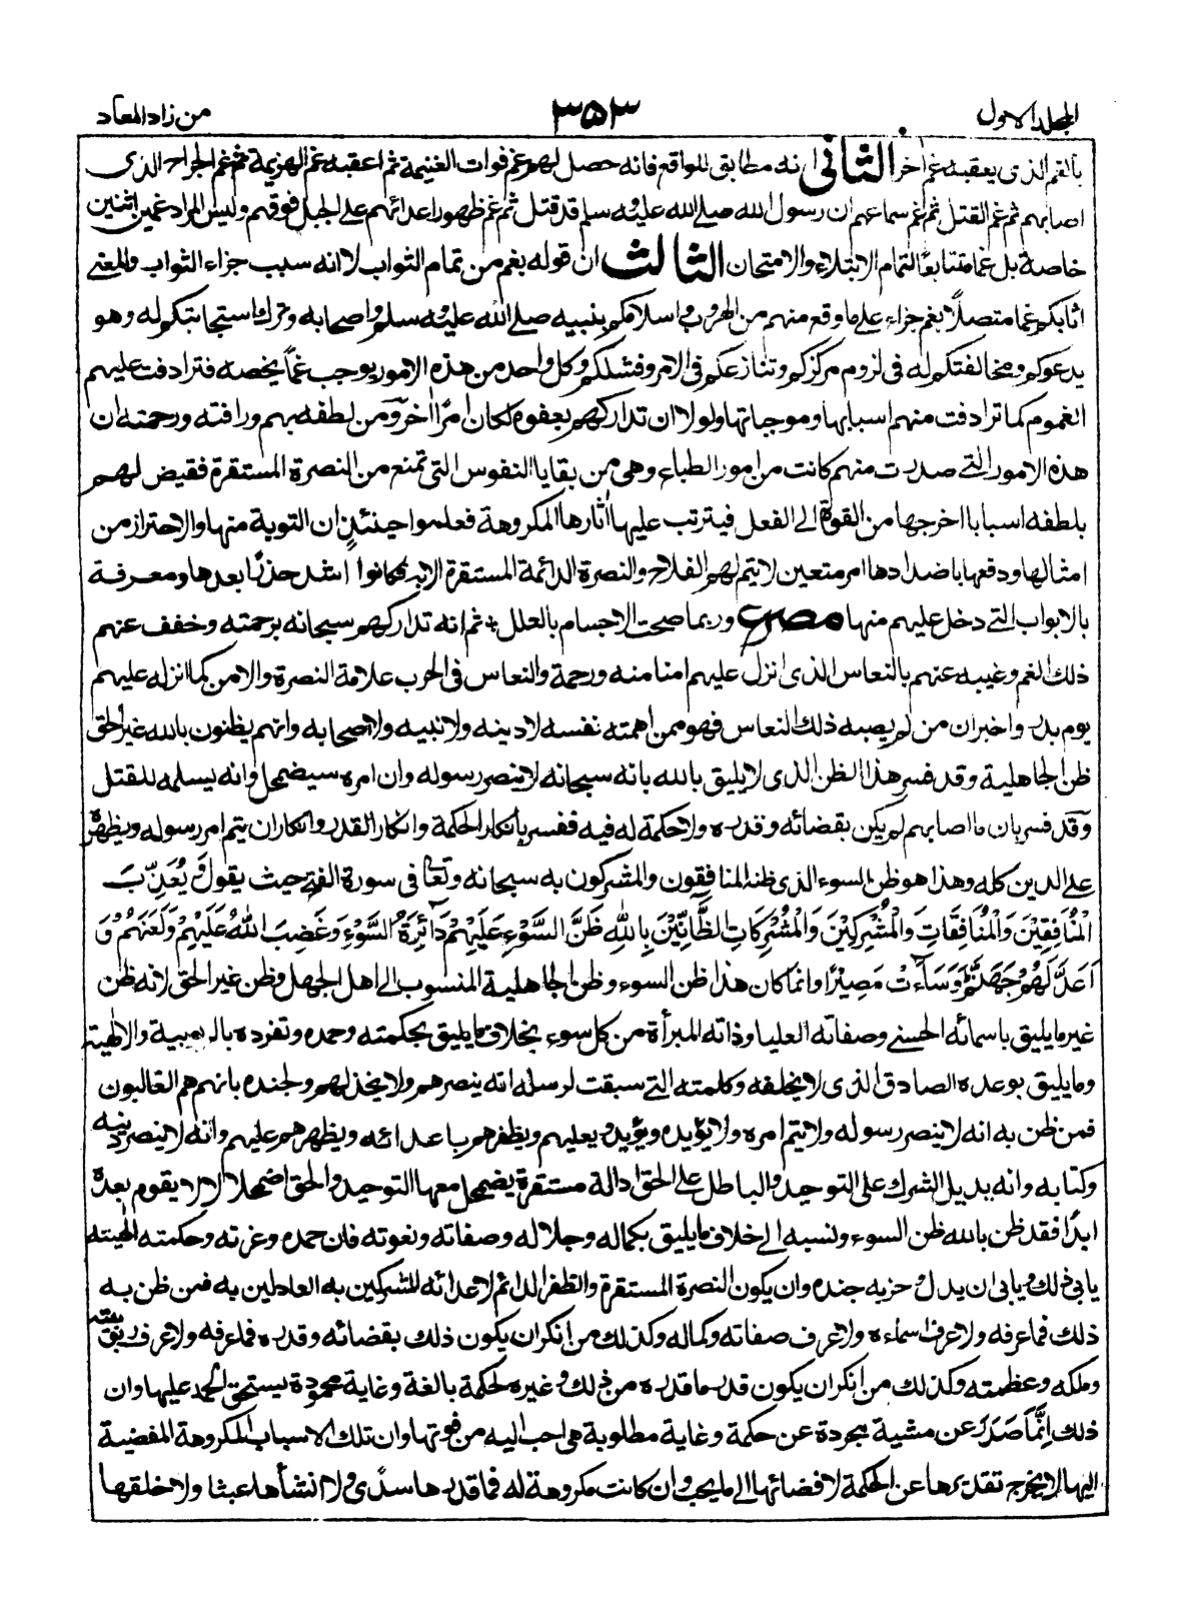 المجلد الاول
٣٥٣
من زاد المعاد
بالغم الذى يعقبه غم اخر الثانى انه مطابق للواقع فانه حصل لهم غم فوات الغنيمة ثم اعقبه غم الهزيمة ثم غم الجراح الذى
اصابهم ثم غم القتل ثم غم سماعهم ان رسول الله صلے الله عليه وسلم قد قتل ثم غم ظهور اعدائهم على الجبل فوقهم وليس المراد غمين اثنين
خاصة بل غما متتابعا لتمام الابتلاء والامتحان الثالث ان قوله بغم من تمام الثواب لا انه سبب جزاء الثواب والمعنے
اثابكم غما متصلًا بغم جزاء على ما وقع منهم من الهروب واسلامكم بنبيه صلے الله عليه وسلم واصحابه وترك استجابتكم له وهو
يدعوكم ومخالفتكم له فى لزوم مركزكم وتنازعكم فى الامر وفشلكم وكل واحد من هذه الامور يوجب غماً يخصه فترادفت عليهم
الغموم كما ترادفت منهم اسبابها وموجباتها ولولا ان تداركهم بعفوه لكان امرًا اخر ومن لطفه بهم ورافته ورحمته ان
هذه الامور التے صدرت منهم كانت من امور الطباع وهى من بقايا النفوس التى تمنع من النصرة المستقرة فقيض لهم
بلطفه اسبابا اخرجها من القوة الى الفعل فيترتب عليها اٰثارها المكروهة فعلموا حينئذٍ ان التوبة منها والاحتراز من
امثالها ودفعها باضدادها امر متعين لا يتم لهم الفلاح والنصرة الدائمة المستقرة الا به فكانوا اشد حذرًا بعدها ومعرفة
بالابواب التے دخل عليهم منها مصرع وربما صحت الاجسام بالعلل ٭ ثم انه تداركهم سبحانه برحمته وخفف عنهم
ذلك الغم وغيبه عنهم بالنعاس الذى انزل عليهم امنا منه ورحمة والنعاس فى الحرب علامة النصرة والامن كما انزله عليهم
يوم بدر واخبر ان من لم يصبه ذلك النعاس فهو ممن اهمته نفسه لا دينه ولا نبيه ولا اصحابه وانهم يظنون بالله غير الحق
ظن الجاهلية وقد فسر هذا الظن الذى لا يليق بالله بانه سبحانه لا ينصر رسوله وان امره سيضمحل وانه يسلمه للقتل
وقد فسر بان ما اصابهم لم يكن بقضائه وقدره ولا حكمة له فيه ففسر بانكار الحكمة وانكار القدر وانكار ان يتم امر رسوله ويظهره
على الدين كله وهذا هو ظن السوء الذى ظنه المنافقون والمشركون به سبحانه وتعالى فى سورة الفتح حيث يقول وَيُعَذِّبَ
الْمُنَافِقِيْنَ وَالْمُنَافِقَاتِ وَالْمُشْرِكِيْنَ وَالْمُشْرِكَاتِ الظَّانِّيْنَ بِاللهِ ظَنَّ السَّوْءِ عَلَيْهِمْ دَآئِرَةُ السَّوْءِ وَغَضِبَ اللهُ عَلَيْهِمْ وَلَعَنَهُمْ وَ
اَعَدَّ لَهُمْ جَهَنَّمَ وَسَآءَتْ مَصِيْرًا وانما كان هذا ظن السوء وظن الجاهلية المنسوب الى اهل الجهل وظن غير الحق لانه ظن
غير ما يليق باسمائه الحسنے وصفاته العليا وذاته المبرأة من كل سوء بخلاف ما يليق بحكمته وحمده وتفرده بالربوبية والالٰهية
وما يليق بوعده الصادق الذى لا يخلفه وكلمته التے سبقت لرسله انه ينصرهم ولا يخذلهم ولجنده بانهم هم الغالبون
فمن ظن به انه لا ينصر رسوله ولا يتم امره ولا يؤيده ويؤيد ويعليهم ويظفرهم باعدائه ويظهرهم عليهم وانه لا ينصر دينه
وكتابه وانه يديل الشرك على التوحيد والباطل على الحق ادالة مستقرة يضمحل معها التوحيد والحق اضمحلالا لا يقوم بعده
ابدًا فقد ظن بالله ظن السوء ونسبه الى خلاف ما يليق بكماله وجلاله وصفاته ونعوته فان حمده وعزته وحكمته الٰهيته
يابى ذلك ويابى ان يذل حزبه وجنده وان يكون النصرة المستقرة والظفر الدائم لاعدائه المشركين به العادلين به فمن ظن به
ذلك فما عرفه ولا عرف اسماءه ولا عرف صفاته وكماله وكذلك من انكر ان يكون ذلك بقضائه وقدره فما عرفه ولا عرف ربوبيته
وملكه وعظمته وكذلك من انكر ان يكون قدر ما قدره من ذلك وغيره لحكمة بالغة وغاية محمودة يستحق الحمد عليها وان
ذلك اِنَّمَا صَدَرَ عن مشية مجردة عن حكمة وغاية مطلوبة هى احب اليه من فوتها وان تلك الاسباب المكروهة المفضية
اليها لا يخرج تقديرها عن الحكمة لافضائها الى ما يحب وان كانت مكروهة له فما قدرها سدًى ولا انشأها عبثا ولا خلقها